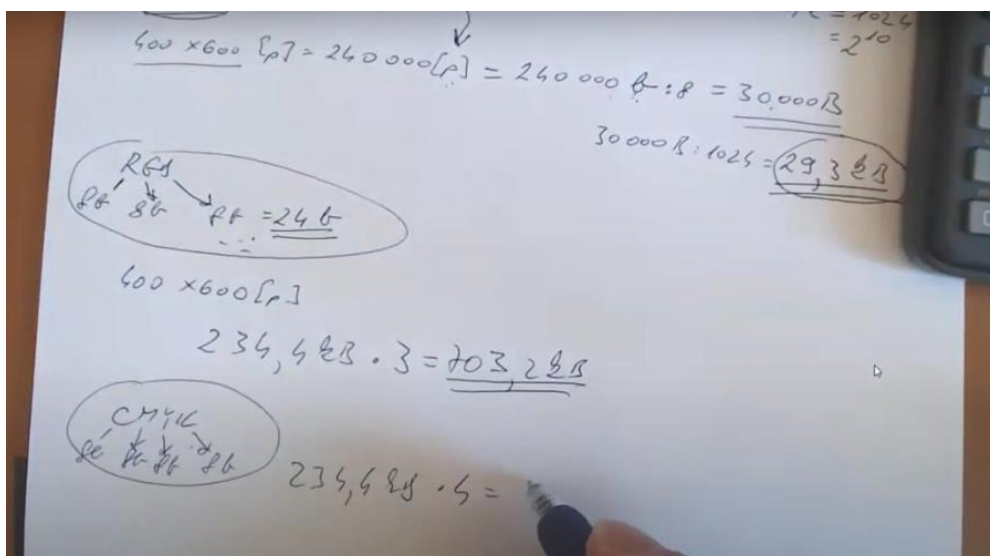 = 1024
= 2^10
400 x 600 [p] = 240 000 [p] = 240 000 b : 8 = 30.000 B
30 000 B : 1024 = 29,3 kB
RGB
8b 8b 8b = 24 b
400 x 600 [p]
234,4 kB . 3 = 703,2 kB
CMYK
8b 8b 8b 8b
234,4 kB . 4 =